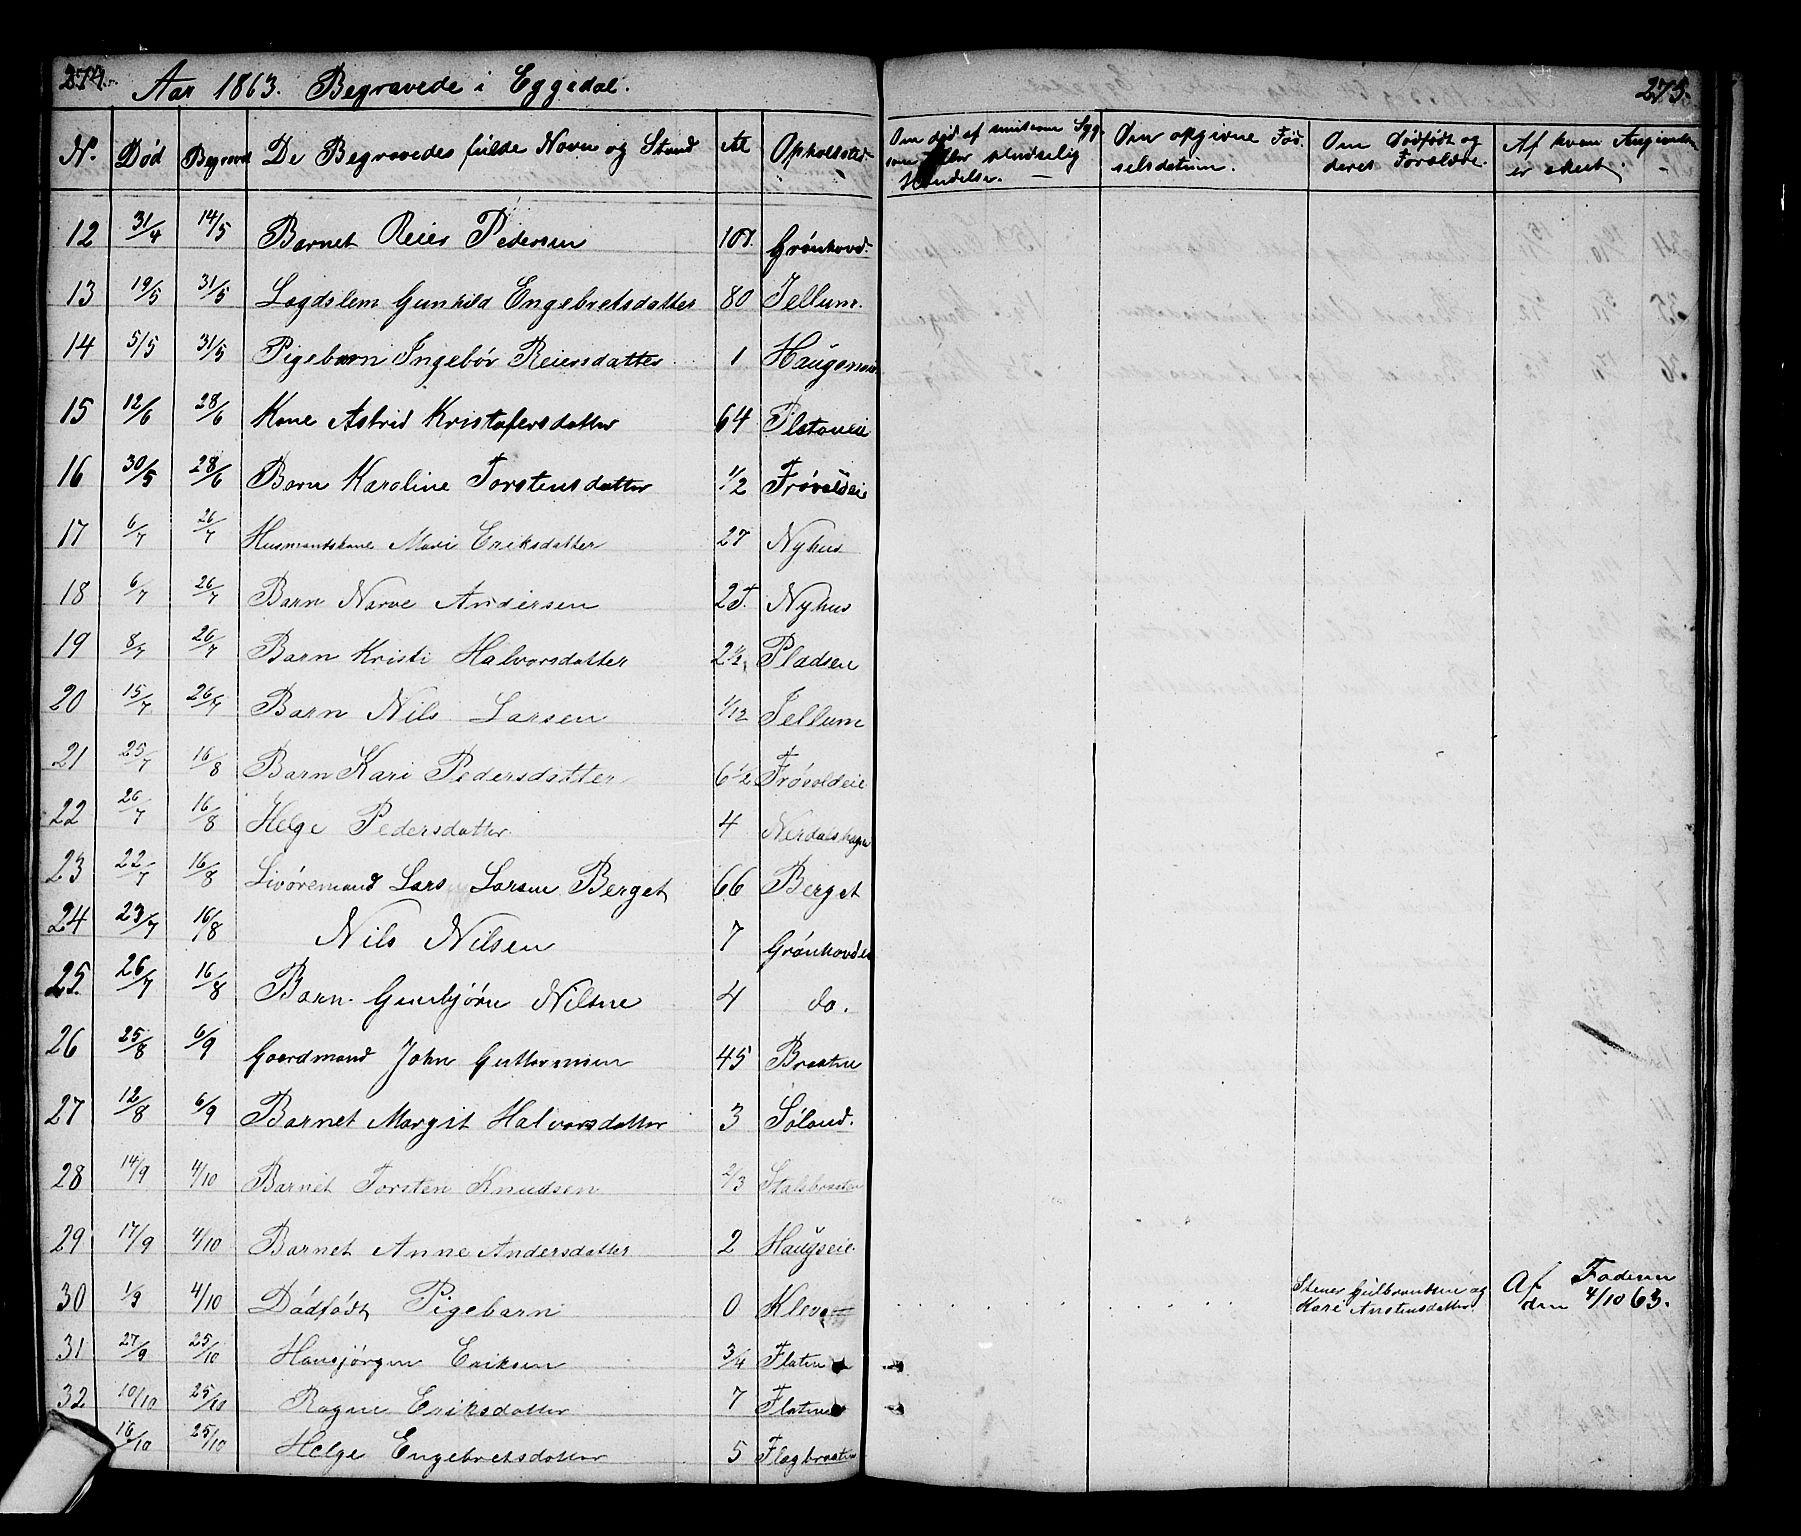 274. Aar 1863. Begravede i Eggedal. 275.
N. Død Begravd De Begravedes fulde Navn og Stand Al Opholdssted Om død af smitsom Syg- Den opgivne Fød- Om Dødfødt og Af hvem Angivelsen
som eller pludselig selsdatum. deres Forældre. er skeet.
Hændelse.
12 31/4 14/5 Barnet Reier Pedersen Grønhovd.
13 19/5 31/5 Lægdslem Gunhild Engebretsdatter 80 Tellum.
14 5/5 31/5 Pigebarn Ingebør Reiersdatter 1
15 12/6 28/6 Kone Astrid Kristofersdatter 64 Flatoneie
16 30/5 28/6 Barn Karoline Torstensdatter 1/2 Frøvoldeie
17 6/7 26/7 Husmandskone Mari Eriksdatter 27 Nyhus
18 6/7 26/7 Barn Narve Andersen 2T. Nyhus
19 8/7 26/7 Barn Kristi Halvorsdatter 2 1/2 Pladsen
20 15/7 26/7 Barn Nils Larsen 1/12 Tellum
21 25/7 16/8 Barn Kari Pedersdatter 6 1/2 Frøvoldeie
22 26/7 16/8 Helge Pedersdatter 4 Nerdalshagen
23 22/7 16/8 Livøremand Lars Larsen Berget 66 Berget
24 23/7 16/8 Nils Nilsen 7 Grønhovdei
25. 26/7 16/8 Barn Gunbjørn Nilsne 4 do.
26 25/8 6/9 Gaardmand John Guttormsen 45 Braatne
27 12/8 6/9 Barnet Margit Halvorsdatter 3 Søland.
28 14/9 4/10 Barnet Torsten Knudsen 2/3 Stalsbraaten
29 17/9 4/10 Barnet Anne Andersdatter 2 Haugseie
30 1/9 4/10 Dødfødt Pigebarn 0 Kleva Stener Gulbrandsen og Af Faderen
Kari Anstensdatter den 4/10 63.
31 27/9 25/10 Hansjørgen Eriksen 3/4 Flaten
32 10/10 25/10 Ragne Eriksdatter 7 Flaten
16/10 25/10 Helge Engebretsdatter 5 Flagbraaten